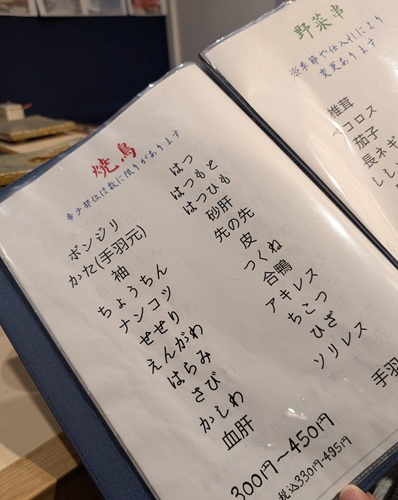 焼鳥
希少部位は数に限りがあります
ボンジリ
かた(手羽元)
袖
ちょうちん
ナンコツ
せせり
えんがわ
はらみ
さび
かしわ
血肝
はつ
はつもと
はつひも
砂肝
先の先
皮
つくね
合鴨
アキレス
ちこつ
ひざ
ソリレス
手羽
300円〜450円
税込330円-495円
野菜串
※季節や仕入れにより
変更あります
椎茸
ペコロス
茄子
長ネギ